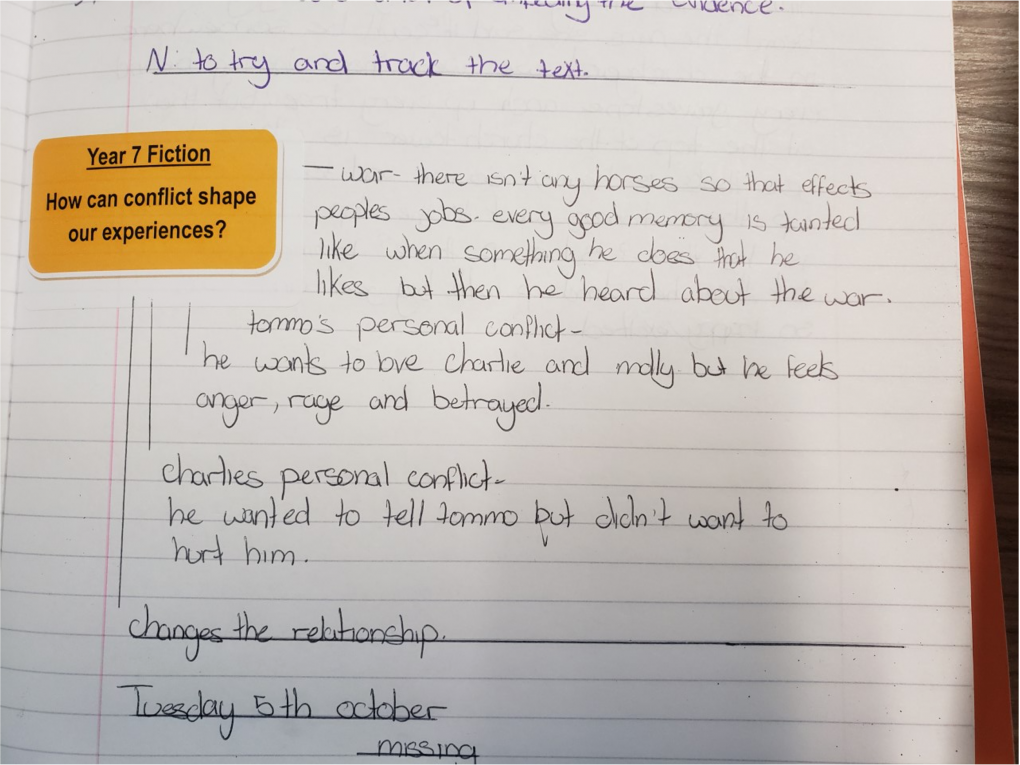 evidence.
N: to try and track the text.
Year 7 Fiction
How can conflict shape
our experiences?
– war- there isn't any horses so that effects
peoples jobs. every good memory is tainted
like when something he does that he
likes but then he heard about the war.
tommo's personal conflict-
he wants to love charlie and molly but he feels
anger, rage and betrayed.
charlies personal conflict-
he wanted to tell tommo but didn't want to
hurt him.
changes the relationship.
Tuesday 5th october
missing